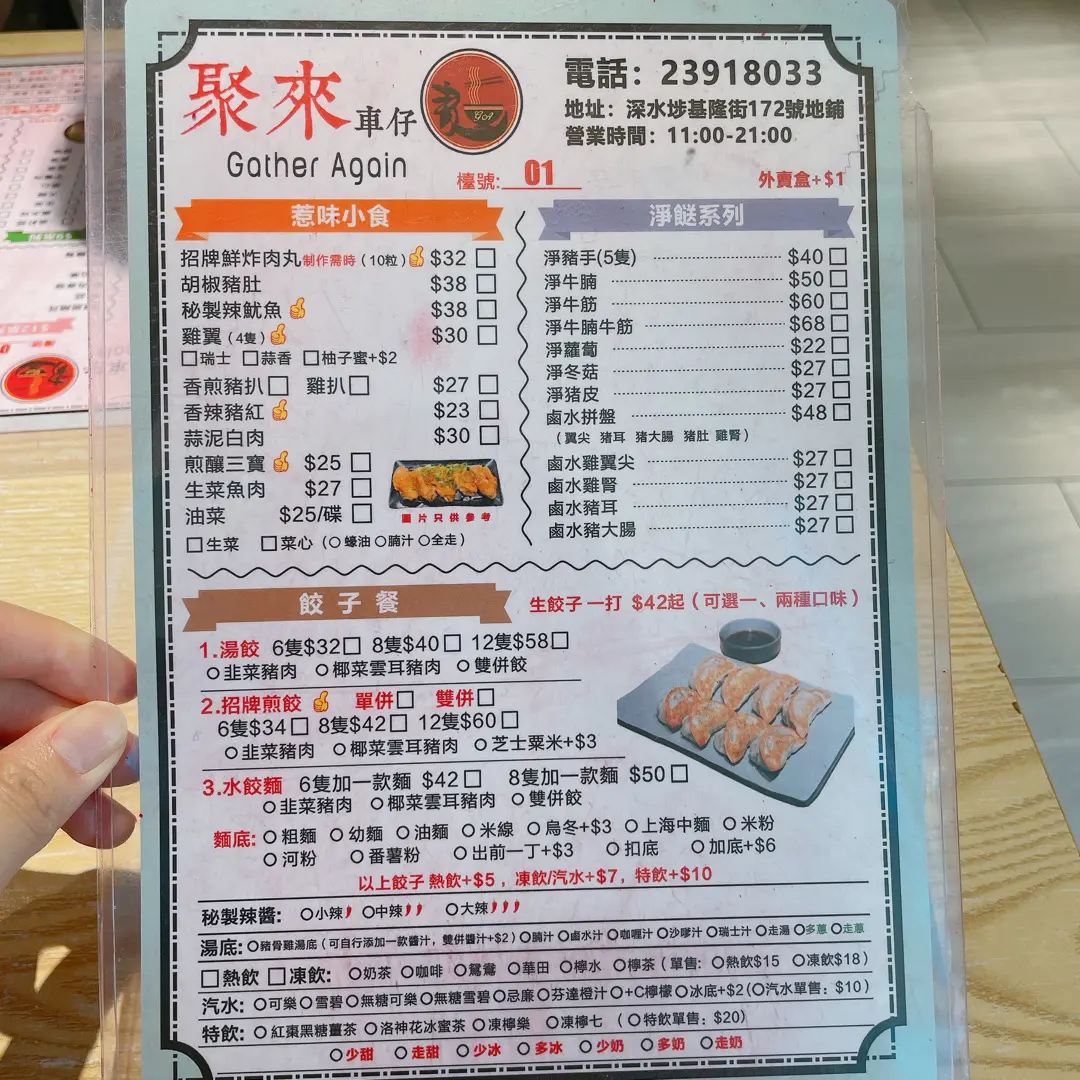 聚來車仔麵
Gather Again
電話：23918033
地址：深水埗基隆街172號地鋪
營業時間：11:00-21:00
檯號: 01
外賣盒+$1
惹味小食
招牌鮮炸肉丸制作需時（10粒） $32
胡椒豬肚 $38
秘製辣魷魚 $38
雞翼（4隻） $30
瑞士 蒜香 柚子蜜+$2
香煎豬扒 雞扒 $27
香辣豬紅 $23
蒜泥白肉 $30
煎釀三寶 $25
生菜魚肉 $27
油菜 $25/碟
生菜 菜心（蠔油 腩汁 全走）
圖片只供參考
淨餸系列
淨豬手(5隻) $40
淨牛腩 $50
淨牛筋 $60
淨牛腩牛筋 $68
淨蘿蔔 $22
淨冬菇 $27
淨豬皮 $27
鹵水拼盤 $48
（翼尖 豬耳 豬大腸 豬肚 雞腎）
鹵水雞翼尖 $27
鹵水雞腎 $27
鹵水豬耳 $27
鹵水豬大腸 $27
餃子餐
生餃子一打 $42起（可選一、兩種口味）
1.湯餃 6隻$32 8隻$40 12隻$58
韭菜豬肉 椰菜雲耳豬肉 雙併餃
2.招牌煎餃 單併 雙併
6隻$34 8隻$42 12隻$60
韭菜豬肉 椰菜雲耳豬肉 芝士粟米+$3
3.水餃麵 6隻加一款麵 $42 8隻加一款麵 $50
韭菜豬肉 椰菜雲耳豬肉 雙併餃
麵底: 粗麵 幼麵 油麵 米線 烏冬+$3 上海中麵 米粉
河粉 番薯粉 出前一丁+$3 扣底 加底+$6
以上餃子 熱飲+$5，凍飲/汽水+$7，特飲+$10
秘製辣醬: 小辣 中辣 大辣
湯底: 豬骨雞湯底（可自行添加一款醬汁，雙併醬汁+$2）腩汁 鹵水汁 咖喱汁 沙嗲汁 瑞士汁 走湯 多蔥 走蔥
熱飲 凍飲: 奶茶 咖啡 鴛鴦 華田 檸水 檸茶（單售: 熱飲$15 凍飲$18）
汽水: 可樂 雪碧 無糖可樂 無糖雪碧 忌廉 芬達橙汁 +C檸檬 冰底+$2(汽水單售: $10)
特飲: 紅棗黑糖薑茶 洛神花冰蜜茶 凍檸樂 凍檸七 （特飲單售: $20）
少甜 走甜 少冰 多冰 少奶 多奶 走奶